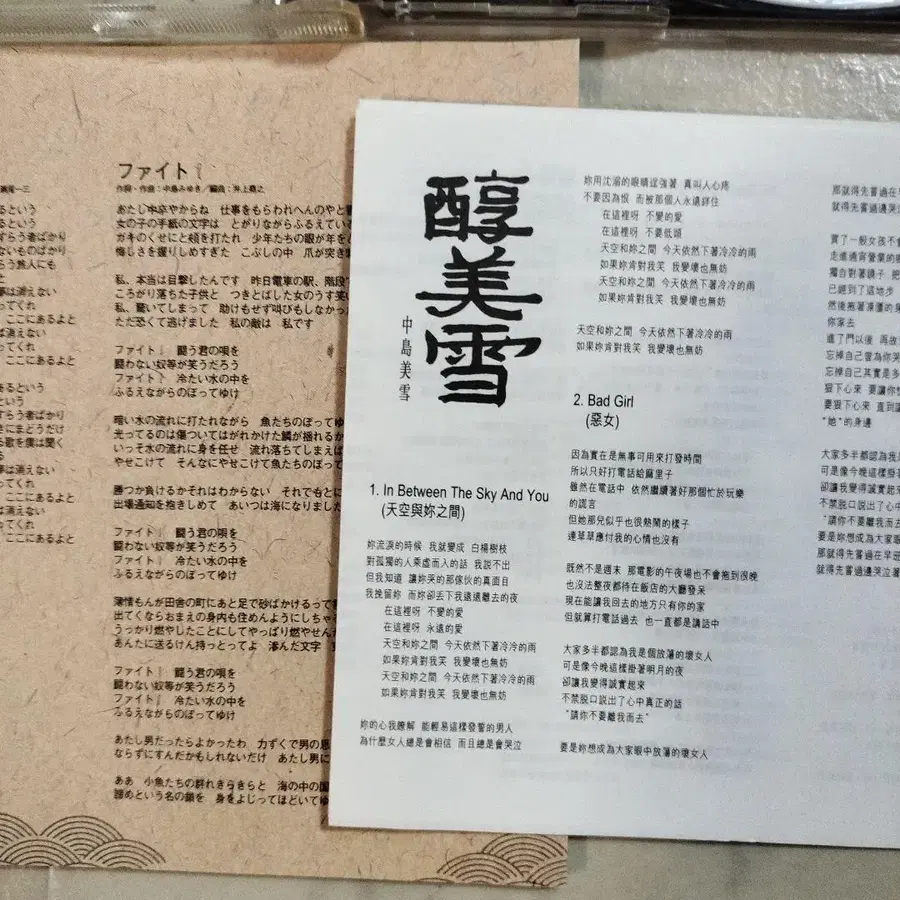 瀬尾一三
るという
るという
すらう者ばかり
ないものばかり
すらう旅人にも
夢は消えない
ってくれ
ここにあるよと
は消えない
ってくれ
ここにあるよと
あるという
ると言う
すらう者ばかり
きにまどうだけ
る歌を僕は聞く
る
夢は消えない
ってくれ
ここにあるよと
は消えない
ってくれ
ここにあるよと
ファイト!
作詞・作曲:中島みゆき/編曲:井上堯之
あたし中卒やからね 仕事をもらわれへんのやと
女の子の手紙の文字は とがりながらふるえている
ガキのくせにと頬を打たれ 少年たちの眼が年を
悔しさを握りしめすぎた こぶしの中 爪が突き
私、本当は目撃したんです 昨日電車の駅、階段で
ころがり落ちた子供と つきとばした女のうす笑い
私、驚いてしまって 助けもせず叫びもしなかった
ただ恐くて逃げました 私の敵は 私です
ファイト! 闘う君の唄を
闘わない奴等が笑うだろう
ファイト! 冷たい水の中を
ふるえながらのぼってゆけ
暗い水の流れに打たれながら 魚たちのぼってゆ
光ってるのは傷ついてはがれかけた鱗が揺れるから
いっそ水の流れに身を任せ 流れ落ちてしまえば
やせこけて そんなにやせこけて魚たちのぼって
勝つか負けるかそれはわからない それでもとに
出場通知を抱きしめて あいつは海になりました
ファイト! 闘う君の唄を
闘わない奴等が笑うだろう
ファイト! 冷たい水の中を
ふるえながらのぼってゆけ
薄情もんが田舎の町にあと足で砂ばかけるって
出てくならおまえの身内も住めんようにしちゃる
うっかり燃やしたことにしてやっぱり燃やせん
あんたに送るけん持っとってよ 滲んだ文字
ファイト! 闘う君の唄を
闘わない奴等が笑うだろう
ファイト! 冷たい水の中を
ふるえながらのぼってゆけ
あたし男だったらよかったわ 力ずくで男の思
ならずにすんだかもしれないだけ あたし男に
ああ 小魚たちの群れきらきらと 海の中の国
諦めという名の鎖を 身をよじってほどいてゆ
醇美雪
中島美雪
1. In Between The Sky And You
(天空與妳之間)
妳流淚的時候 我就變成 白楊樹枝
對孤獨的人乘虛而入的話 我說不出
但我知道 讓妳哭的那傢伙的真面目
我挽留妳 而妳卻丟下我遠遠離去的夜
在這裡呀 不變的愛
在這裡呀 永遠的愛
天空和妳之間 今天依然下著冷冷的雨
如果妳肯對我笑 我變壞也無妨
天空和妳之間 今天依然下著冷冷的雨
如果妳肯對我笑 我變壞也無妨
妳的心我瞭解 能輕易這樣發誓的男人
為什麼女人總是會相信 而且總是會哭泣
妳用沈溺的眼睛逞強著 真叫人心疼
不要因為恨 而被那個人永遠絆住
在這裡呀 不變的愛
在這裡呀 不要低頭
天空和妳之間 今天依然下著冷冷的雨
如果妳肯對我笑 我變壞也無妨
天空和妳之間 今天依然下著冷冷的雨
如果妳肯對我笑 我變壞也無妨
天空和妳之間 今天依然下著冷冷的雨
如果妳肯對我笑 我變壞也無妨
2. Bad Girl
(惡女)
因為實在是無事可用來打發時間
所以只好打電話給麻里子
雖然在電話中 依然繼續著好那個忙於玩樂
的謊言
但她那兒似乎也很熱鬧的樣子
連草草應付我的心情也沒有
既然不是週末 那電影的午夜場也不會拖到很晚
也沒法整夜都待在飯店的大廳發呆
現在能讓我回去的地方只有你的家
但就算打電話過去 也一直都是講話中
大家多半都認為我是個放蕩的壞女人
可是像今晚這樣掛著明月的夜
卻讓我變得誠實起來
不禁脫口說出了心中真正的話
"請你不要離我而去"
要是妳想成為大家眼中放蕩的壞女人
那就得先嘗過在
就得先嘗過邊哭
買了一般女孩不
走進通宵營業的
獨自對著鏡子 把
已經到了這地步
然後抱著凍僵的
你家去
進了門以後 再故
忘掉自己曾為你
忘掉自己其實是多
狠下心來 要讓你
要狠下心來 直到
"她"的身邊
大家多半都認為我
可是像今晚這樣掛
卻讓我變得誠實起
不禁脫口說出了心
"請你不要離我而去
要是妳想成為大家
那就得先嘗過在早
就得先嘗過邊哭泣著